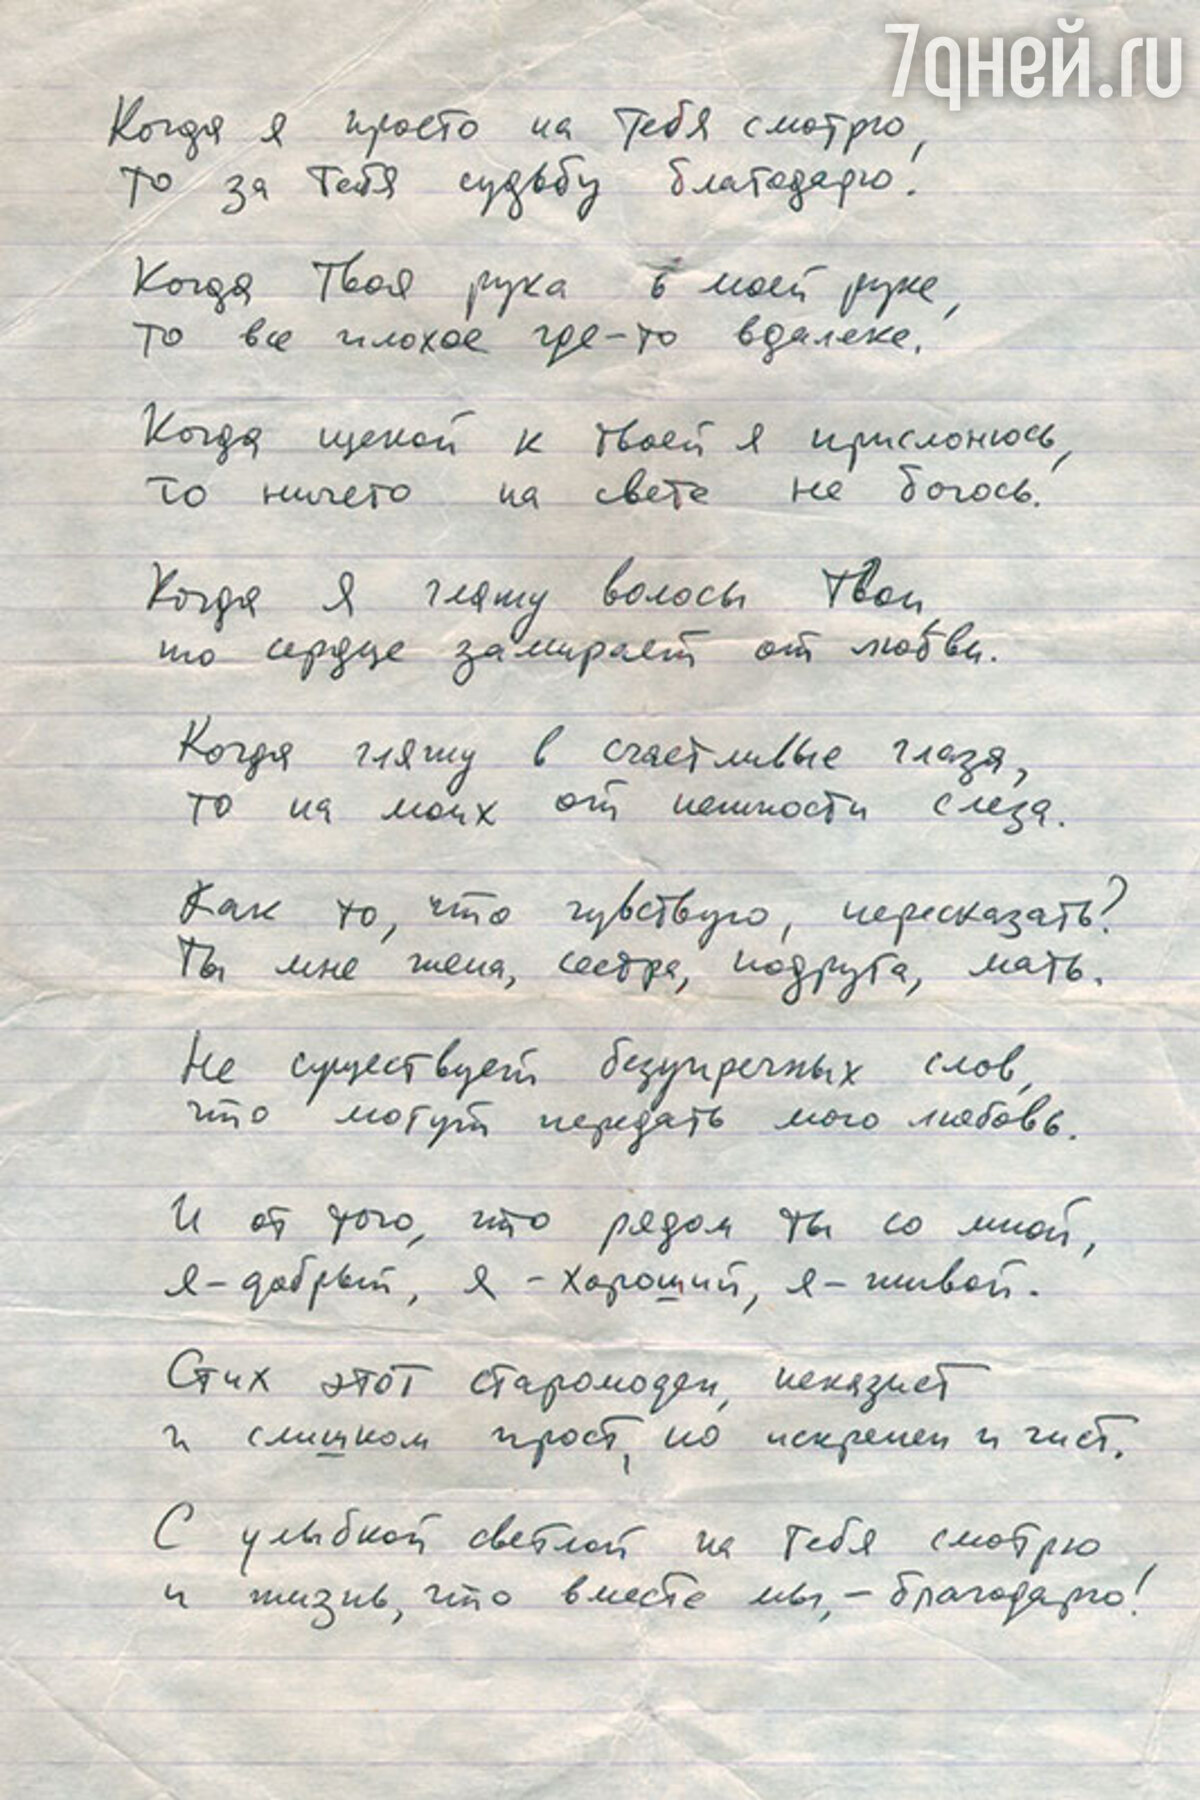 7дней.ru
Когда я просто на тебя смотрю,
то за тебя судьбу благодарю.
Когда твоя рука в моей руке,
то все плохое где-то вдалеке.
Когда щекой к твоей я прислонюсь,
то ничего на свете не боюсь.
Когда я глажу волосы твои,
то сердце замирает от любви.
Когда гляжу в счастливые глаза,
то на моих от нежности слеза.
Как то, что чувствую, пересказать?
Ты мне жена, сестра, подруга, мать.
Не существует безупречных слов,
что могут передать мою любовь.
И от того, что рядом ты со мной,
я - добрый, я - хороший, я - живой.
Стих этот старомоден, неказист
и слишком прост, но искренен и чист.
С улыбкой светлой на тебя смотрю
и жизнь, что вместе мы, - благодарю!